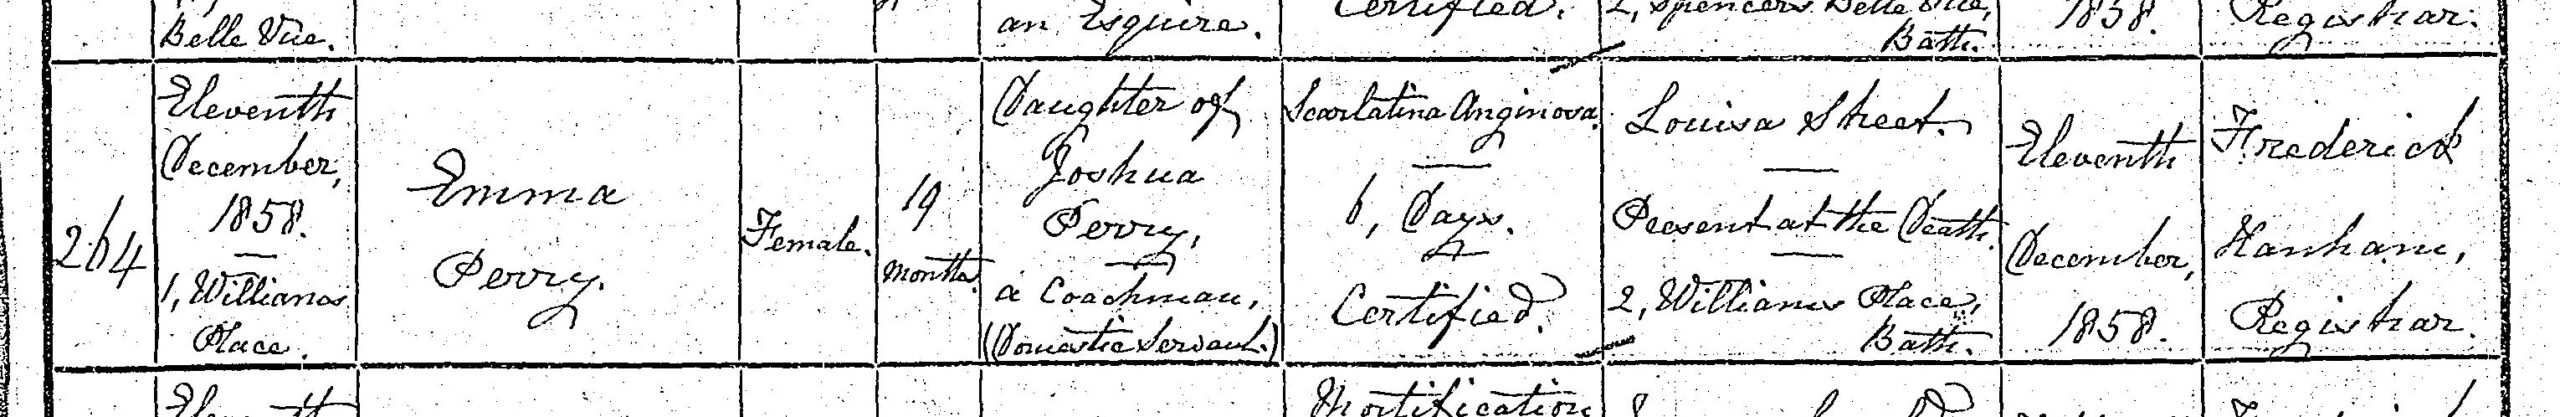 Belle Vue.
an Esquire.
Certified.
2, Spencers Belle Vue,
Bath.
1858.
Registrar.
264
Eleventh
December,
1858.
1, Williams
Place.
Emma
Perry.
Female.
19
Months.
Daughter of
Joshua
Perry,
a Coachman,
(Domestic Servant.)
Scarlatina Anginosa.
6, Days.
Certified.
Louisa Street.
Present at the Death.
2, Williams Place,
Bath.
Eleventh
December,
1858.
Frederick
Hanham,
Registrar.
Mortification